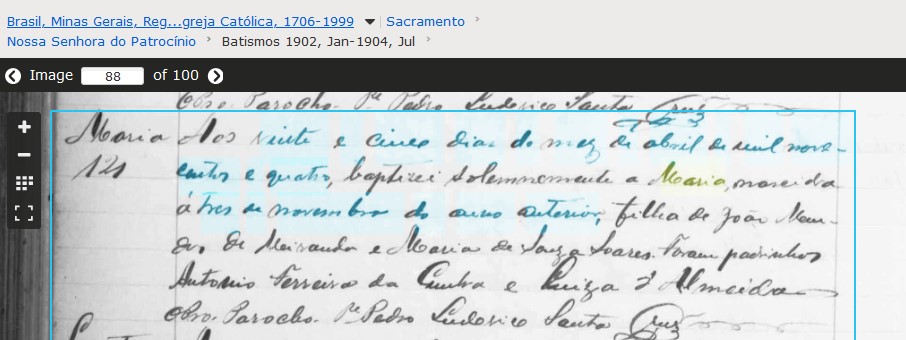 Brasil, Minas Gerais, Reg...greja Católica, 1706-1999 Sacramento
Nossa Senhora do Patrocínio Batismos 1902, Jan-1904, Jul
Image 88 of 100
Pro. Parocho. Pe. Pedro Ludovico Santa Cruz
Maria Aos vinte e cinco dias do mez de abril de mil nove-
121 centos e quatro, baptizei solemnemente a Maria, nascida
á tres de novembro do anno anterior, filha de João Men-
des de Meiranda e Maria de Souza Soares. Foram padrinhos
Antonio Ferreira da Cunha e Luiza d'Almeida
Pro. Parocho. Pe. Pedro Ludovico Santa Cruz